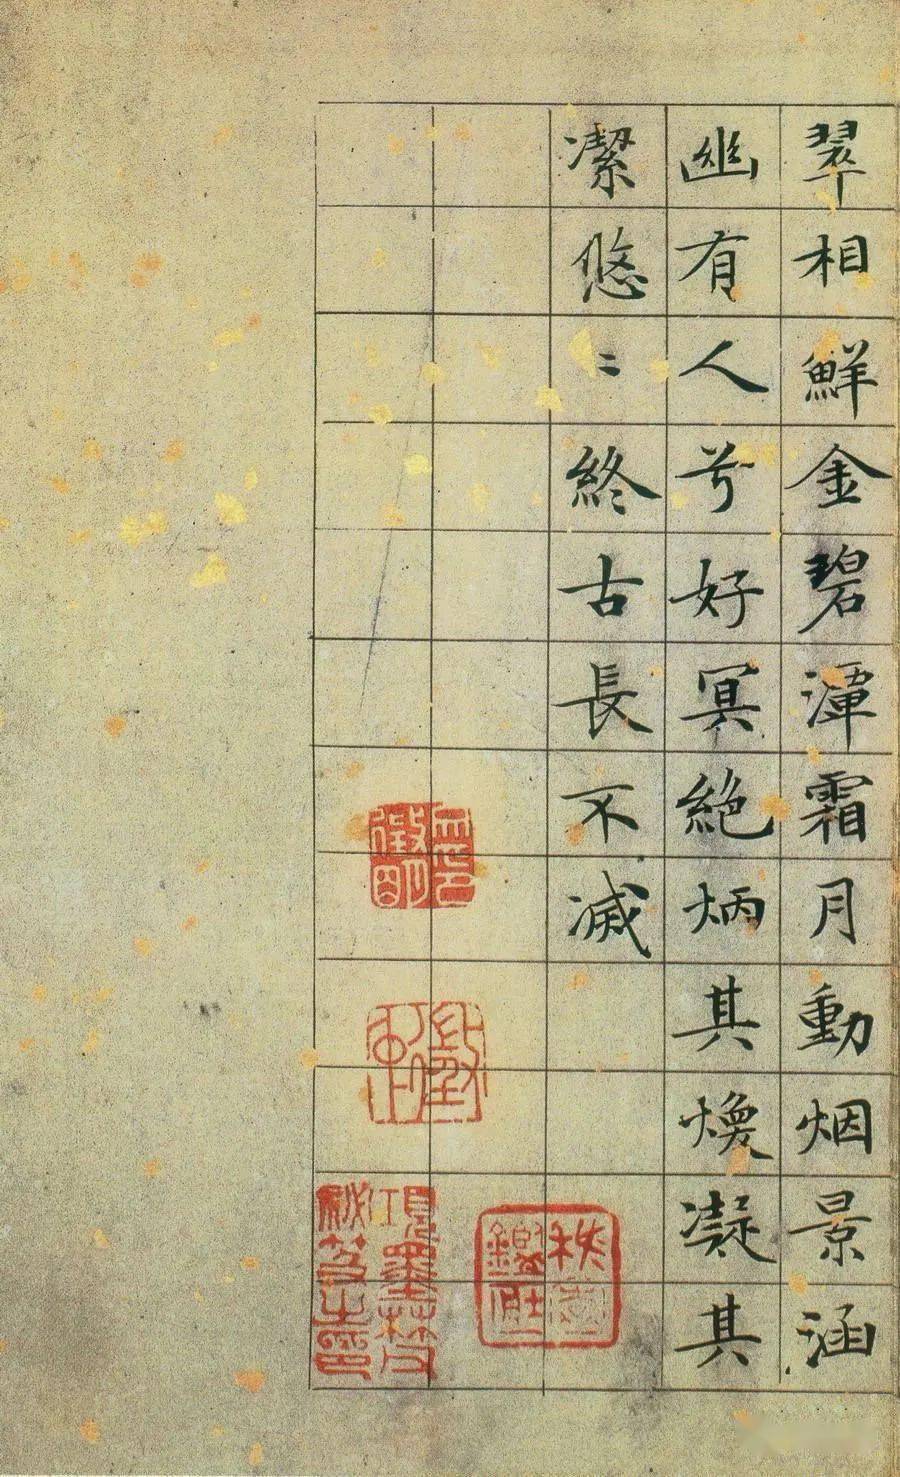 翠相鮮金碧潭霜月動烟景涵
幽有人兮好冥絕炳其煥凝其
潔悠〻終古長不滅
項墨林父
秘笈之印